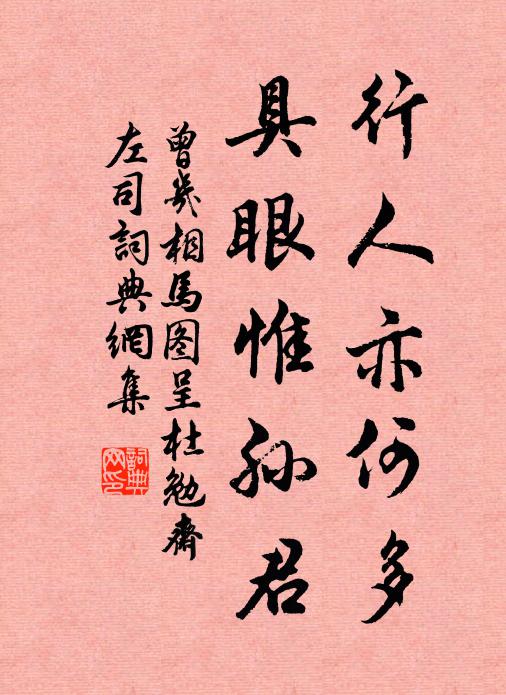 行人亦何多
具眼惟孙君
曾几相馬图呈杜勉齋
左司詞典網集
詞典网印